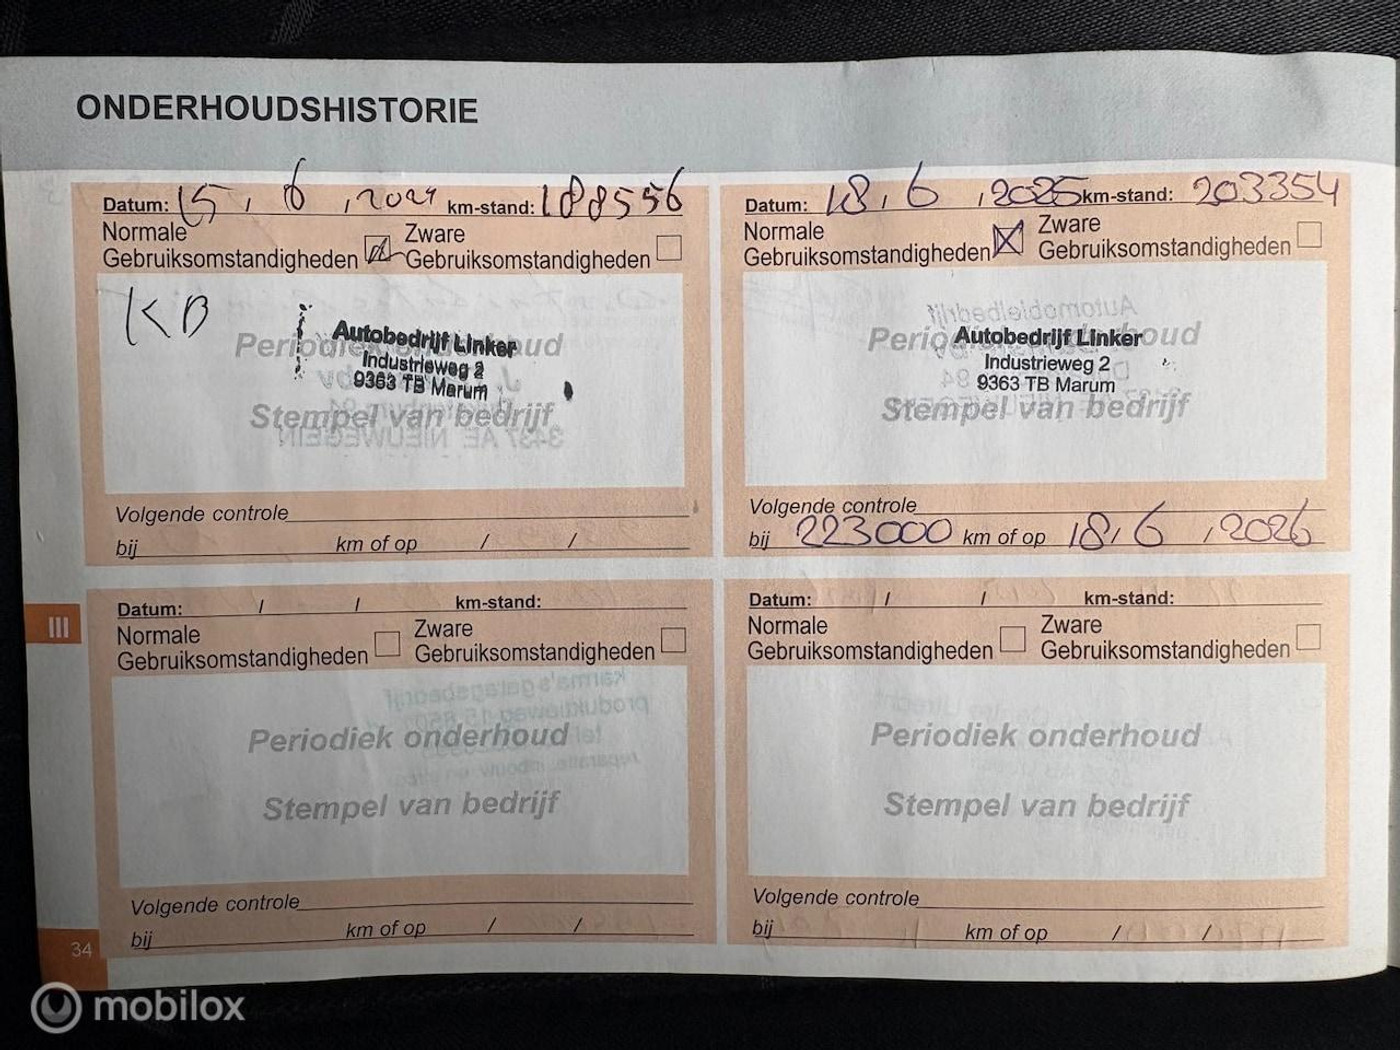 ONDERHOUDSHISTORIE
Datum: 15 / 6 / 2024 km-stand: 188556
Normale Gebruiksomstandigheden Zware Gebruiksomstandigheden
KB
Periodiek onderhoud
Autobedrijf Linker
Industrieweg 2
9363 TB Marum
Stempel van bedrijf
3437 AE NIEUWEGEIN
Volgende controle
bij km of op / /
Datum: 18 / 6 / 2025 km-stand: 203354
Normale Gebruiksomstandigheden Zware Gebruiksomstandigheden
Automobielbedrijf
Periodiek onderhoud
Autobedrijf Linker
Industrieweg 2
9363 TB Marum
Stempel van bedrijf
Volgende controle
bij 223000 km of op 18 / 6 / 2026
III
Datum: / / km-stand:
Normale Gebruiksomstandigheden Zware Gebruiksomstandigheden
Periodiek onderhoud
Stempel van bedrijf
Volgende controle
bij km of op / /
Datum: / / km-stand:
Normale Gebruiksomstandigheden Zware Gebruiksomstandigheden
Periodiek onderhoud
Stempel van bedrijf
Volgende controle
bij km of op / /
34
mobilox